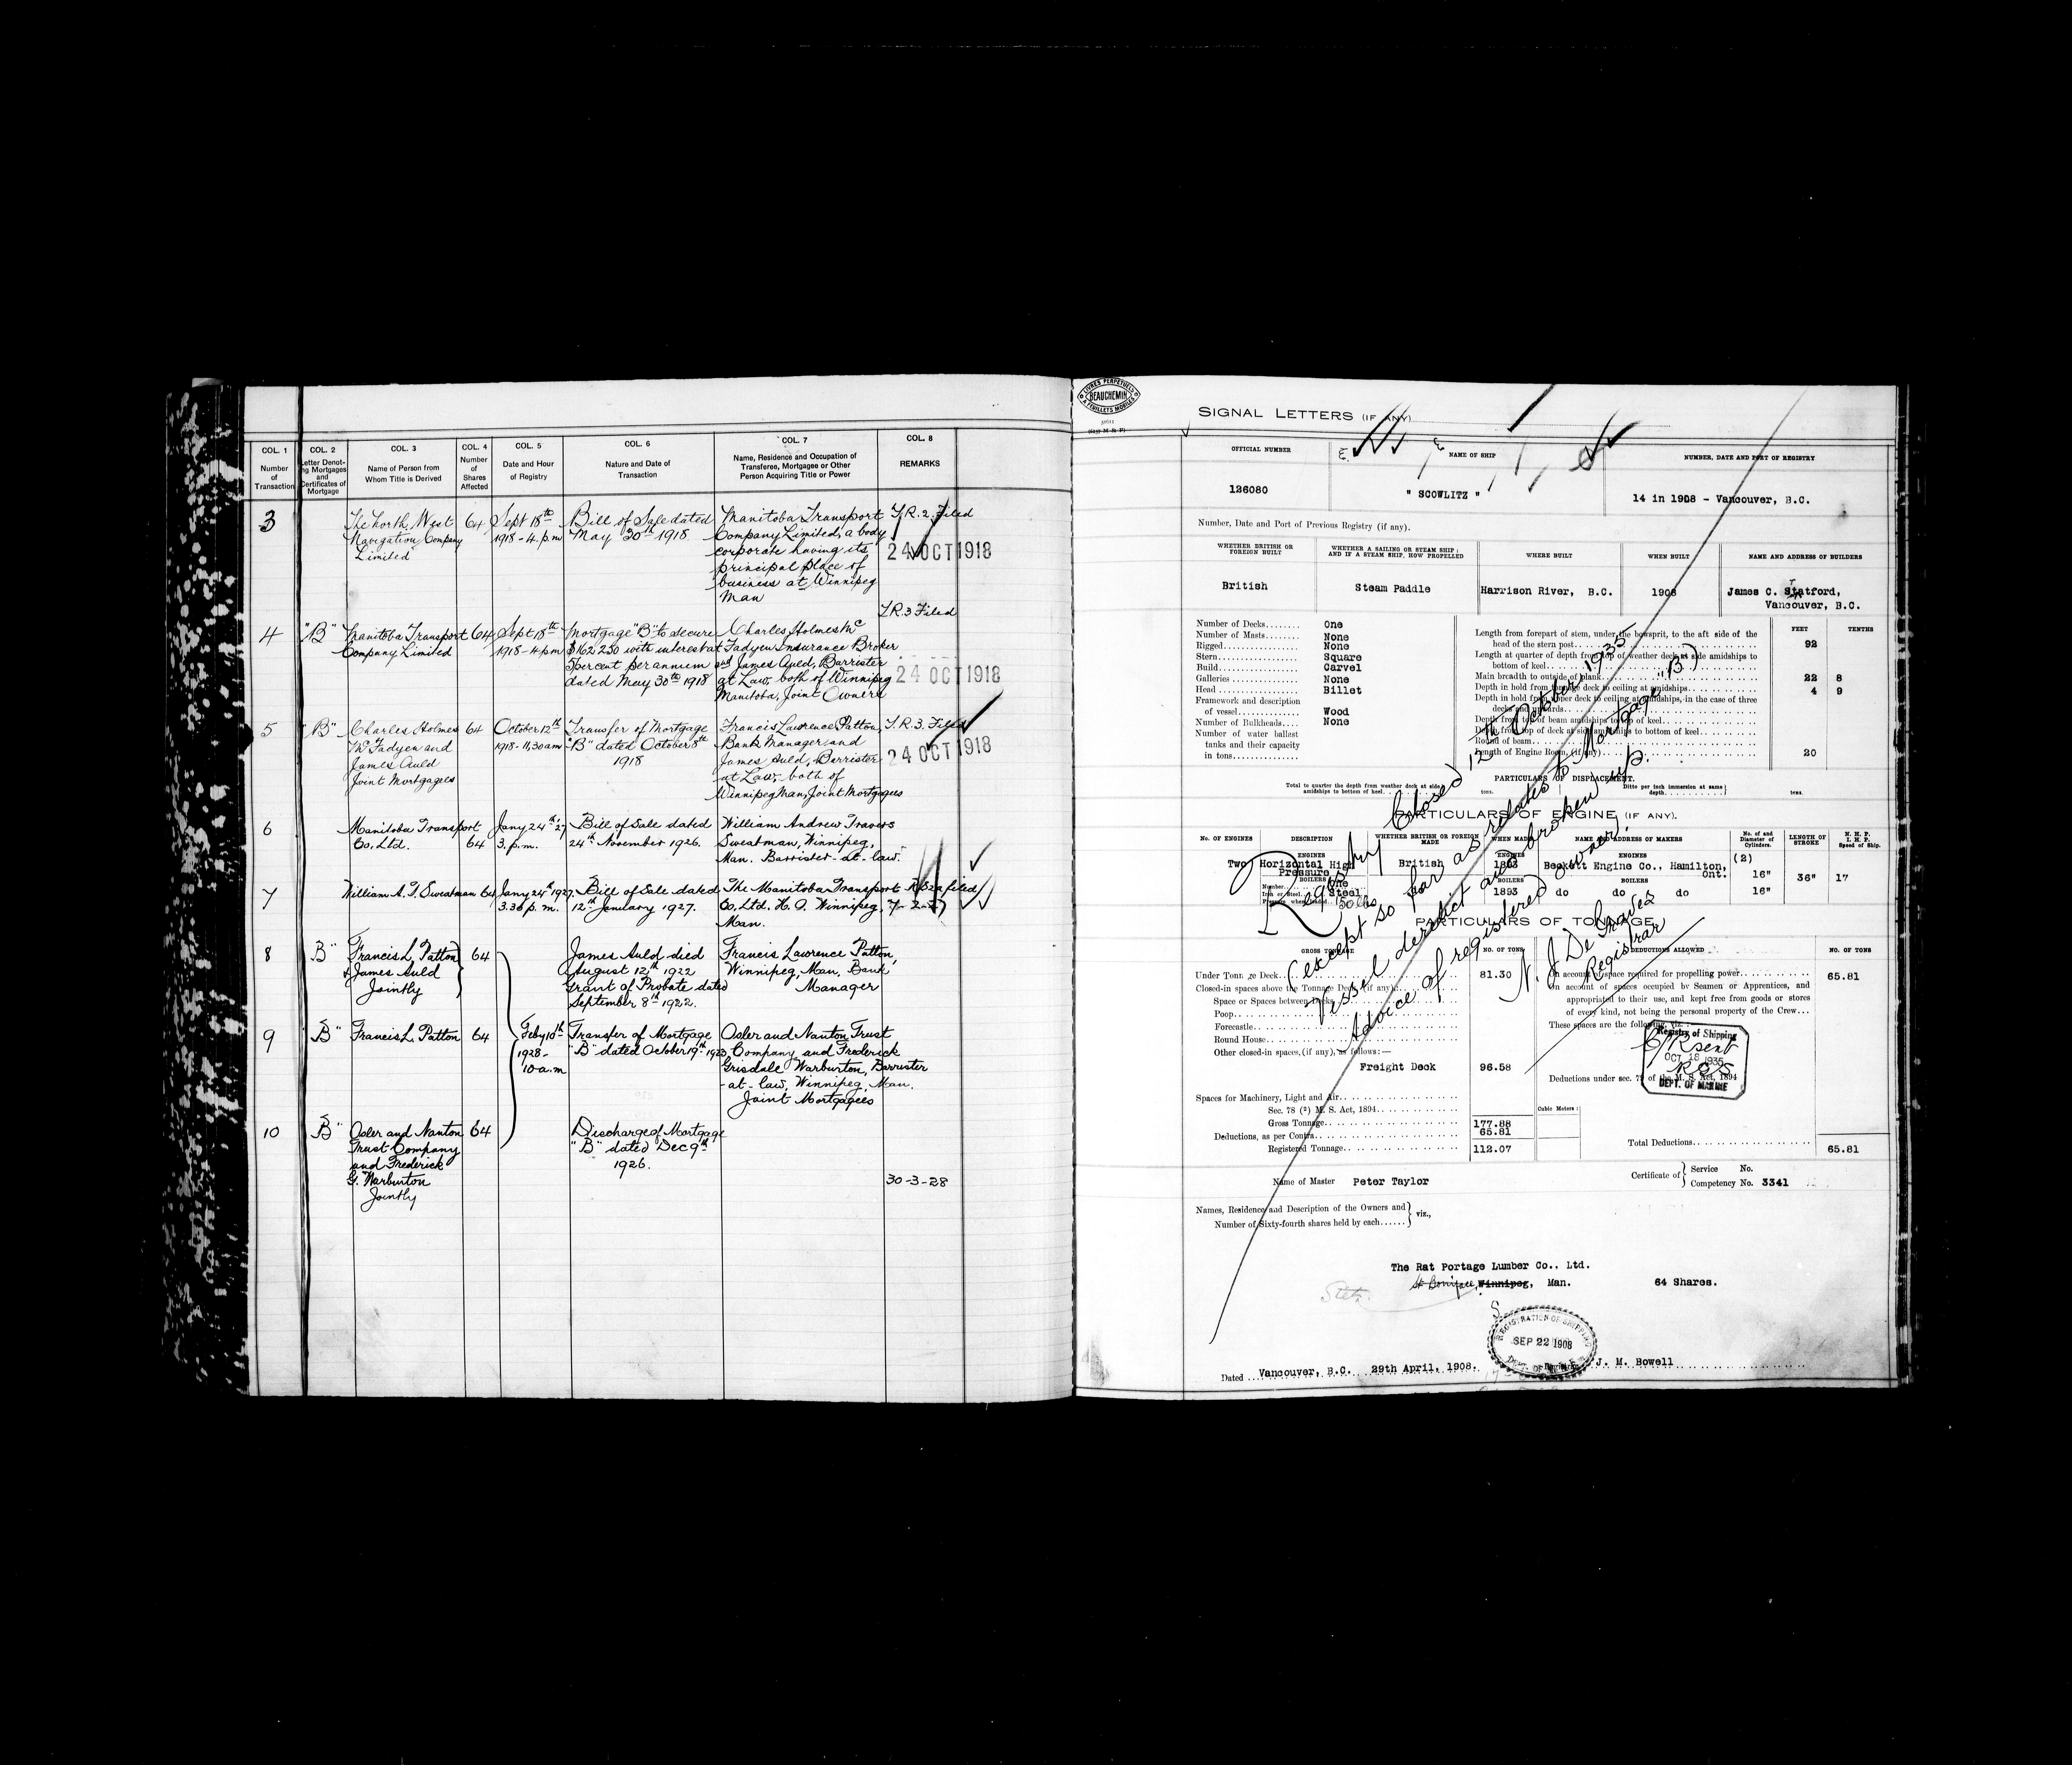 COL. 1
Number
of
Transaction
COL. 2
Letter Denot-
ing Mortgages
and
Certificates of
Mortgage
COL. 3
Name of Person from
Whom Title is Derived
COL. 4
Number
of
Shares
Affected
COL. 5
Date and Hour
of Registry
COL. 6
Nature and Date of
Transaction
COL. 7
Name, Residence and Occupation of
Transferee, Mortgagee or Other
Person Acquiring Title or Power
COL. 8
REMARKS
3
The North West
Navigation Company
Limited
64
Sept 18th
1918 - 4. p.m
Bill of Sale dated
May 30th 1918
Manitoba Transport
Company Limited, a body
corporate having its
principal place of
business at Winnipeg
Man
T.R. 2. Filed
24 OCT 1918
T.R. 3 Filed
4
"B"
Manitoba Transport
Company Limited
64
Sept 18th
1918 - 4 p.m
Mortgage "B" to secure
$162,250 with interest at
5 per cent per annum
dated May 30th 1918
Charles Holmes Mc
Fadyen Insurance Broker
and James Auld, Barrister
at Law, both of Winnipeg
Manitoba, Joint Owners
24 OCT 1918
5
"B"
Charles Holmes
McFadyen and
James Auld
Joint Mortgagees
64
October 12th
1918 - 11,30 am
Transfer of Mortgage
"B" dated October 8th
1918
Francis Lawrence Patton,
Bank Manager and
James Auld, Barrister
at Law, both of
Winnipeg Man, Joint Mortgagees
T.R. 3. Filed
24 OCT 1918
6
Manitoba Transport
Co. Ltd.
64
Jany 24th 27
3. p.m.
Bill of Sale dated
24th November 1926.
William Andrew Travers
Sweatman, Winnipeg,
Man. Barrister-at-law.
7
William A. T. Sweatman
64
Jany 24th 1927
3.30 p.m.
Bill of Sale dated
12th January 1927.
The Manitoba Transport
Co. Ltd. H. O. Winnipeg,
Man.
7-2-27
8
"B"
Francis L. Patton
& James Auld
Jointly
64
James Auld died
August 12th 1922
Grant of Probate dated
September 8th 1922.
Francis Lawrence Patton,
Winnipeg, Man, Bank
Manager
9
"B"
Francis L. Patton
64
Feby 10th
1928 -
10 a.m
Transfer of Mortgage
"B" dated October 19th 1923
Osler and Nanton Trust
Company and Frederick
Grisdale Warburton, Barrister
-at-law, Winnipeg, Man.
Joint Mortgagees
10
"B"
Osler and Nanton
Trust Company
and Frederick
G. Warburton
Jointly
64
Discharge of Mortgage
"B" dated Dec 9th
1926.
30-3-28
LIVRES PERPETUELS
BEAUCHEMIN
A FEUILLETS MOBILES
SIGNAL LETTERS (IF ANY)
OFFICIAL NUMBER
NAME OF SHIP
NUMBER, DATE AND PORT OF REGISTRY
126080
" SCOWLITZ "
14 in 1908 - Vancouver, B.C.
Number, Date and Port of Previous Registry (if any).
WHETHER BRITISH OR
FOREIGN BUILT
WHETHER A SAILING OR STEAM SHIP;
AND IF A STEAM SHIP, HOW PROPELLED
WHERE BUILT
WHEN BUILT
NAME AND ADDRESS OF BUILDERS
British
Steam Paddle
Harrison River, B.C.
1908
James C. Statford,
Vancouver, B.C.
Number of Decks........ One
Number of Masts........ None
Rigged................. None
Stern.................. Square
Build.................. Carvel
Galleries.............. None
Head................... Billet
Framework and description
of vessel.............. Wood
Number of Bulkheads.... None
Number of water ballast
tanks and their capacity
in tons................
FEET
TENTHS
Length from forepart of stem, under the bowsprit, to the aft side of the
head of the stern post.................... 92
Length at quarter of depth from top of weather deck at side amidships to
bottom of keel....................
Main breadth to outside of plank.................... 22 8
Depth in hold from tonnage deck to ceiling at amidships.................... 4 9
Depth in hold from upper deck to ceiling at amidships, in the case of three
decks and upwards....................
Depth from top of beam amidships to top of keel....................
Depth from top of deck at side amidships to bottom of keel....................
Round of beam....................
Length of Engine Room, (if any).................... 20
PARTICULARS OF DISPLACEMENT.
Total to quarter the depth from weather deck at side
amidships to bottom of keel........ tons.
Ditto per inch immersion at same
depth........ tons.
PARTICULARS OF ENGINE (IF ANY).
No. OF ENGINES
DESCRIPTION
WHETHER BRITISH OR FOREIGN
MADE
WHEN MADE
NAME AND ADDRESS OF MAKERS
No. of and
Diameter of
Cylinders.
LENGTH OF
STROKE
N. H. P.
I. H. P.
Speed of Ship.
Two
ENGINES
Horizontal High
Pressure
BOILERS
Number One
Iron or Steel Steel
Pressure when loaded 150 lbs
British
ENGINES
1893
BOILERS
1893
ENGINES
Beckett Engine Co., Hamilton,
Ont.
BOILERS
do do do
(2)
16"
16"
36"
17
PARTICULARS OF TONNAGE.
GROSS TONNAGE
NO. OF TONS
DEDUCTIONS ALLOWED
NO. OF TONS
Under Tonnage Deck.... 81.30
Closed-in spaces above the Tonnage Deck, (if any)
Space or Spaces between Decks
Poop
Forecastle
Round House
Other closed-in spaces, (if any), as follows:—
Freight Deck 96.58
Spaces for Machinery, Light and Air
Sec. 78 (2) M. S. Act, 1894
Gross Tonnage 177.88
Deductions, as per Contra 65.81
Registered Tonnage 112.07
On account of space required for propelling power 65.81
On account of spaces occupied by Seamen or Apprentices, and
appropriated to their use, and kept free from goods or stores
of every kind, not being the personal property of the Crew...
These spaces are the following, viz.:
Deductions under sec. 79 of the M. S. Act, 1894
Cubic Meters:
Total Deductions 65.81
Closed 12th October 1935
(except so far as relates to Mortgage "B")
Vessel derelict and broken up.
Advice of registered owner.
N. J. De Graves
Registrar
Registry of Shipping
OCT 18 1935
DEPT. OF MARINE
Name of Master Peter Taylor
Certificate of Service No.
Competency No. 3341
Names, Residence and Description of the Owners and
Number of Sixty-fourth shares held by each...... viz.,
The Rat Portage Lumber Co., Ltd.
St Boniface, Winnipeg, Man.
64 Shares.
REGISTRATION OF SHIPPING
SEP 22 1908
Dated Vancouver, B.C. 29th April, 1908.
J. M. Bowell